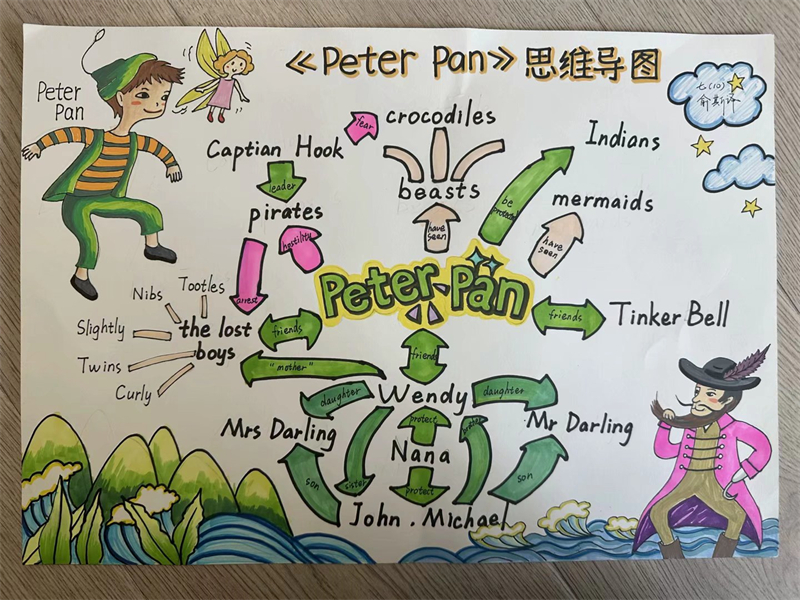 《Peter Pan》思维导图
Peter
Pan
七(10)
crocodiles
fear
Captian Hook
Indians
leader
beasts
be
mermaids
pirates
have
seen
have
seen
hostility
arrest
Peter Pan
Nibs
Tootles
Slightly
the lost
boys
friends
friends
Tinker Bell
Twins
Curly
friends
"mother"
Wendy
daughter
daughter
Mrs Darling
protect
Mr Darling
Nana
son
sister
protect
son
John . Michael